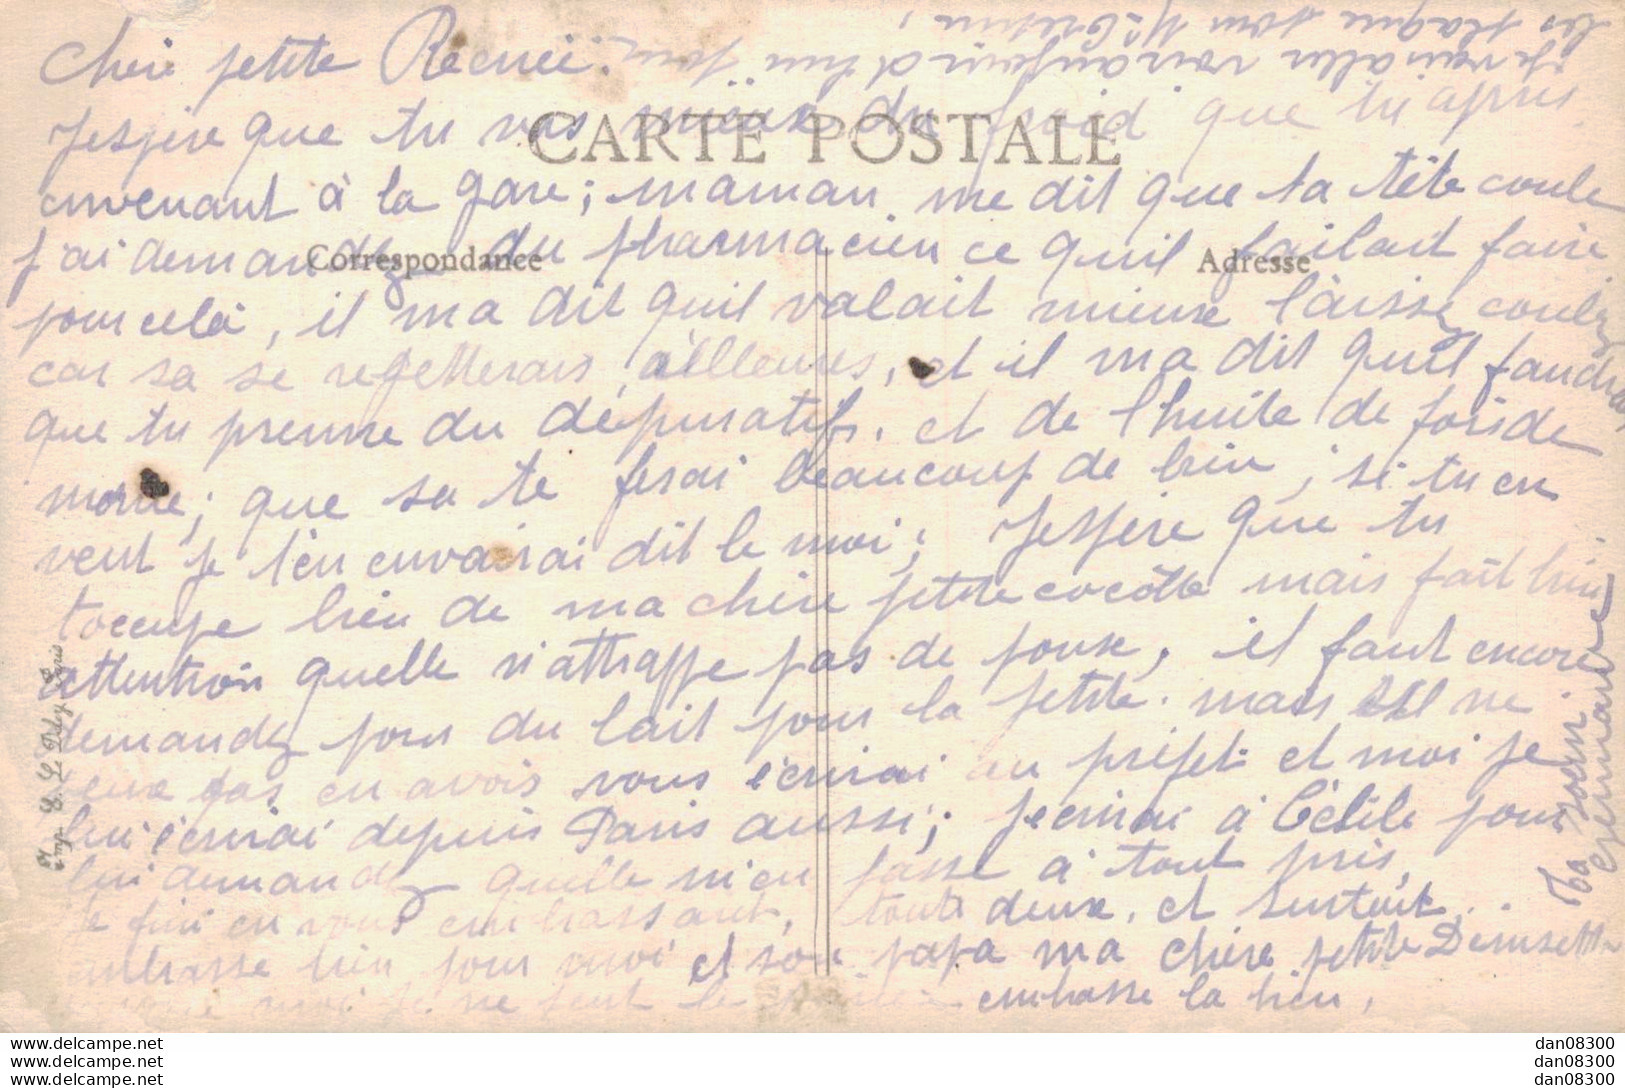 Chère petite Renée.
CARTE POSTALE
J'espère que tu vas mieux du froid que tu a pris
en venant à la gare; maman me dit que ta tête coule
Correspondance
Adresse
j'ai demandez du pharmacien ce quil failait faire
pour celà, il ma dit quil valait mieux laissez coulez
car sa se regetterais ailleurs, et il ma dit quil faudrais
que tu prenne du dépuratif, et de l'huile de foride
morue; que sa te ferai beaucoup de bien; si tu en
veut je t'en envairai dit le moi; J'espère que tu
toccupe bien de ma chère petite cocotte mais fait bien
attention quelle n'attrappe pas de poux, il faut encore
demandez pour du lait pour la petite. mais il ne
veux pas en avois vous écrirai au préfet et moi je
lui écrirai depuis Paris aussi; jecrirai à Cécile pour
lui demandez quelle m'en fasse à tout pris,
je fini en vous embrassant, toute deux, et surtout,
embrasse bien pour moi et son papa ma chère petite Denisette
moi je ne peut le embrasse la bien,
Ta soeur
Germaine
je vais aller voir aujourd'hui pour
les plaque
Imp. E. Le Deley Paris
dan08300
dan08300
dan08300
www.delcampe.net
www.delcampe.net
www.delcampe.net